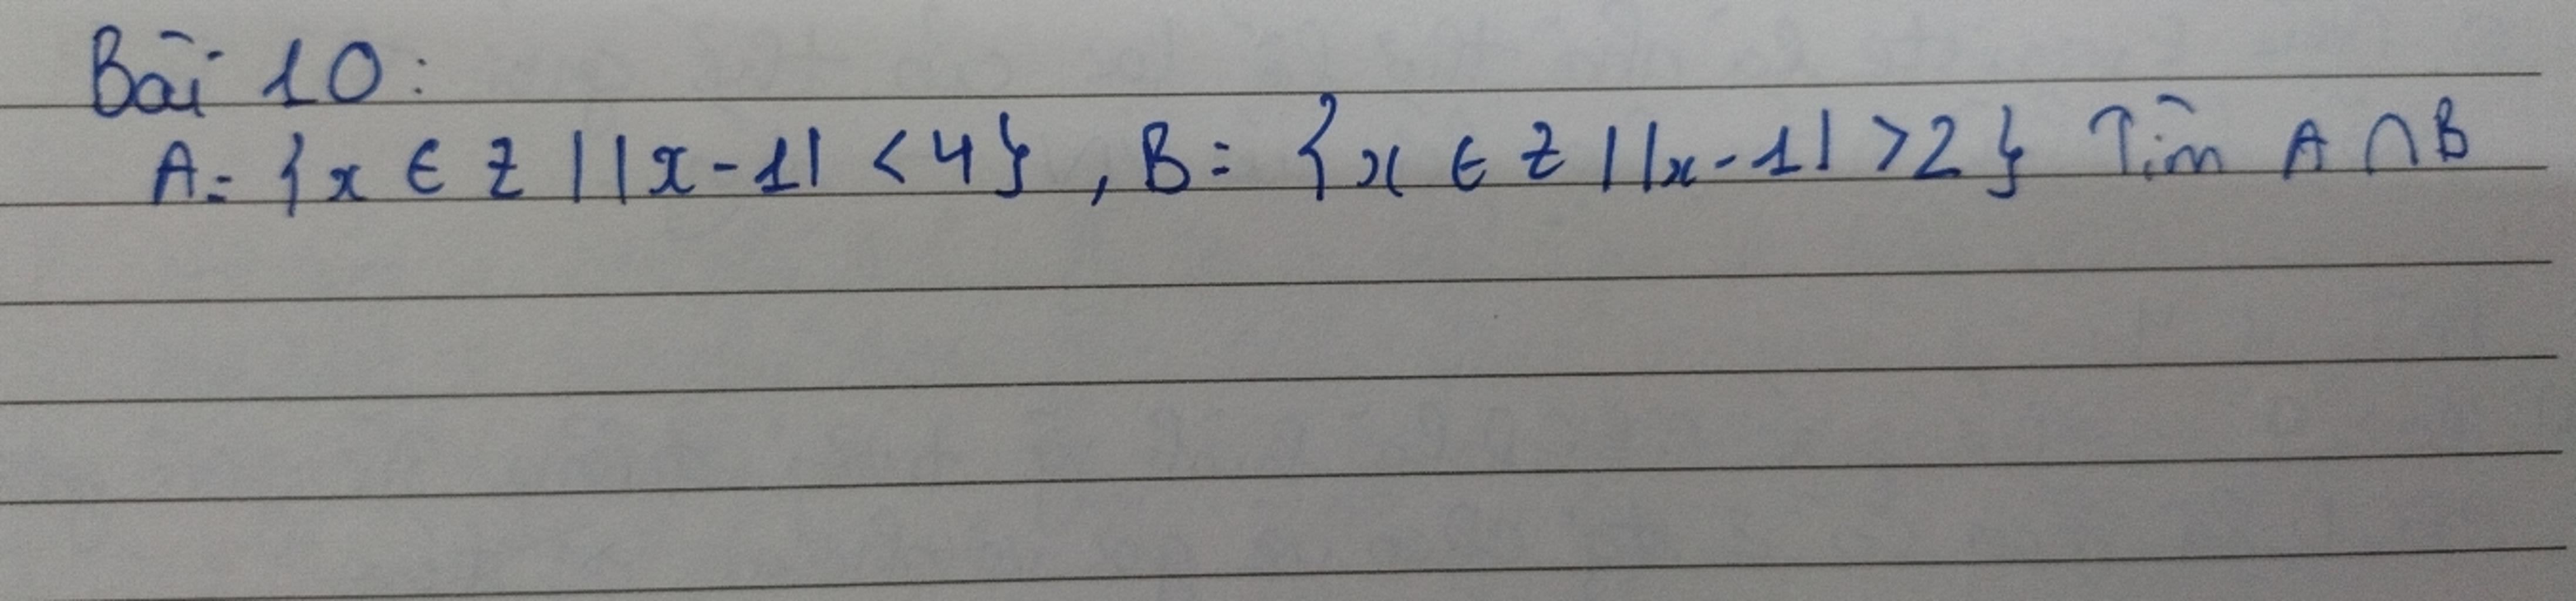 Bài 10:
A = {x ∈ Z | |x - 1| < 4}, B = {x ∈ Z | |x - 1| > 2} Tìm A ∩ B